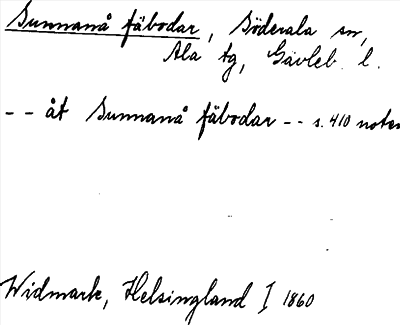 Sunnanå fäbodar, Söderala sn,
Ala tg, Gävleb. l.
-- åt Sunnanå fäbodar -- s. 410 noten
Widmark, Helsingland I 1860